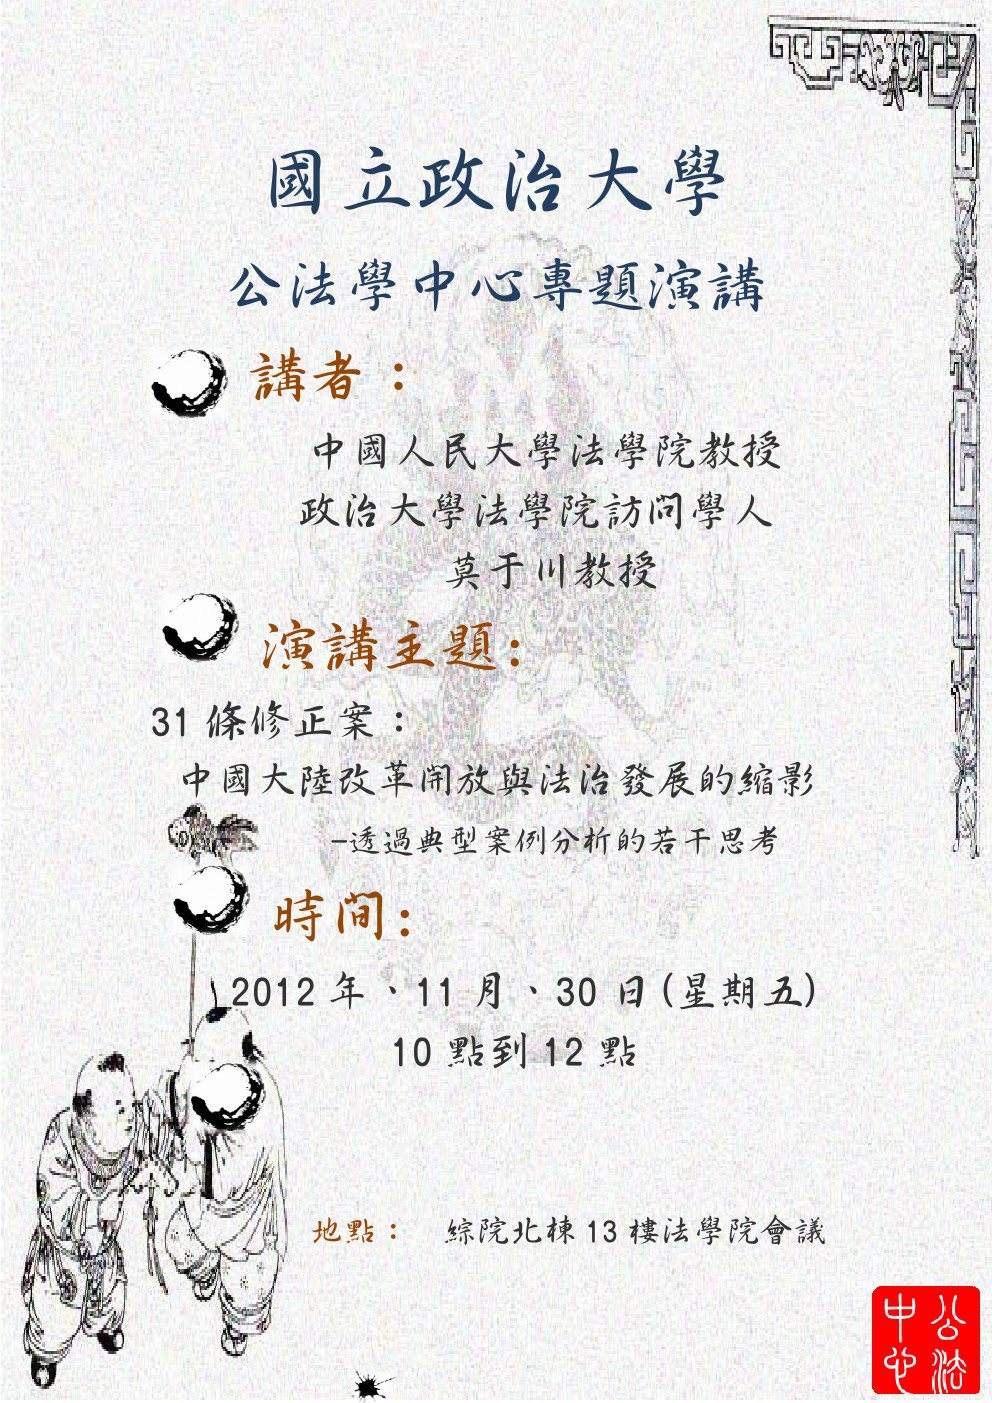 國立政治大學
公法學中心專題演講
講者：
中國人民大學法學院教授
政治大學法學院訪問學人
莫于川教授
演講主題:
31 條修正案：
中國大陸改革開放與法治發展的縮影
-透過典型案例分析的若干思考
時間:
2012 年、11 月、30 日(星期五)
10 點到 12 點
地點： 綜院北棟 13 樓法學院會議
公法
中心